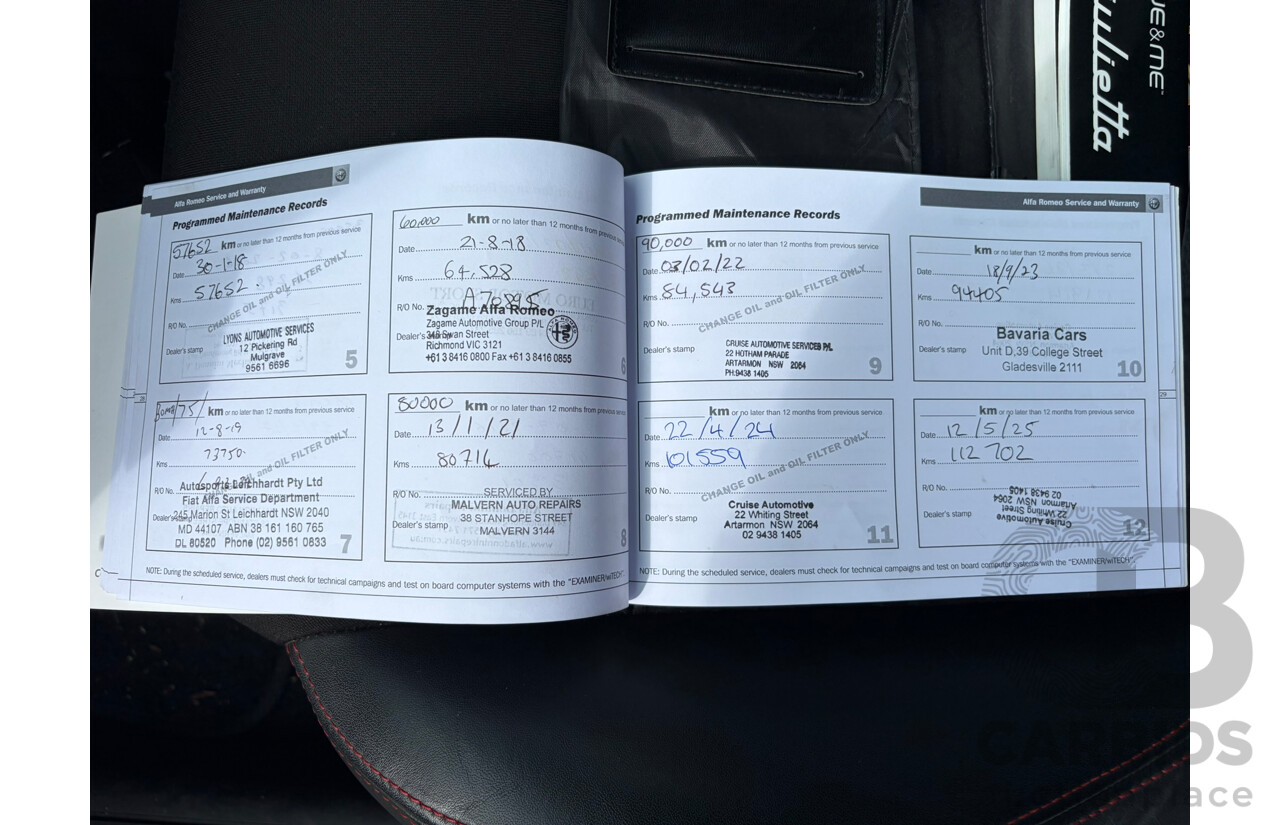 UE&ME™
ulietta
Alfa Romeo Service and Warranty
Programmed Maintenance Records
57652 km or no later than 12 months from previous service
Date 30-1-18
Kms 57652
CHANGE OIL and OIL FILTER ONLY
R/O No.
Dealer's stamp
LYONS AUTOMOTIVE SERVICES
12 Pickering Rd
Mulgrave
9561 6696
5
60,000 km or no later than 12 months from previous service
Date 21-8-18
Kms 64,528
R/O No. A70895
Dealer's stamp
Zagame Alfa Romeo
Zagame Automotive Group P/L
Swan Street
Richmond VIC 3121
+61 3 8416 0800 Fax +61 3 8416 0855
ALFA ROMEO
6
/75/ km or no later than 12 months from previous service
Date 12-8-19
Kms 73750
CHANGE OIL and OIL FILTER ONLY
R/O No.
Dealer's stamp
Autosports Leichhardt Pty Ltd
Fiat Alfa Service Department
245 Marion St Leichhardt NSW 2040
MD 44107 ABN 38 161 160 765
DL 80520 Phone (02) 9561 0833
7
80000 km or no later than 12 months from previous service
Date 13/1/21
Kms 80714
R/O No.
Dealer's stamp
SERVICED BY
MALVERN AUTO REPAIRS
38 STANHOPE STREET
MALVERN 3144
8
NOTE: During the scheduled service, dealers must check for technical campaigns and test on board computer systems with the "EXAMINER/wiTECH".
28
Alfa Romeo Service and Warranty
Programmed Maintenance Records
90,000 km or no later than 12 months from previous service
Date 03/02/22
Kms 84,543
CHANGE OIL and OIL FILTER ONLY
R/O No.
Dealer's stamp
CRUISE AUTOMOTIVE SERVICES P/L
22 HOTHAM PARADE
ARTARMON NSW 2064
PH:9438 1405
9
km or no later than 12 months from previous service
Date 18/9/23
Kms 94405
R/O No.
Dealer's stamp
Bavaria Cars
Unit D,39 College Street
Gladesville 2111
10
km or no later than 12 months from previous service
Date 22/4/24
Kms 101559
CHANGE OIL and OIL FILTER ONLY
R/O No.
Dealer's stamp
Cruise Automotive
22 Whiting Street
Artarmon NSW 2064
02 9438 1405
11
km or no later than 12 months from previous service
Date 12/5/25
Kms 112 702
R/O No.
Dealer's stamp
Cruise Automotive
22 Whiting Street
Artarmon NSW 2064
02 9438 1405
12
NOTE: During the scheduled service, dealers must check for technical campaigns and test on board computer systems with the "EXAMINER/wiTECH".
29
CARBIDS